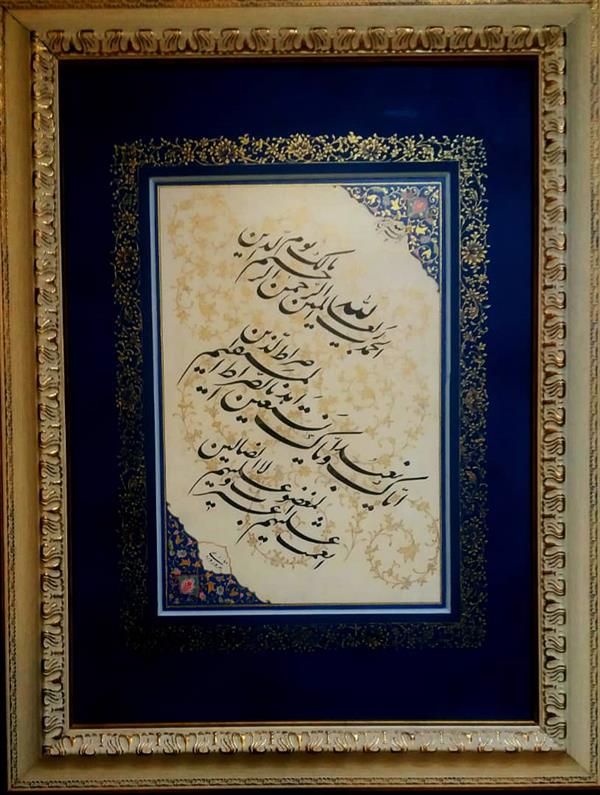 الحمد لله رب العالمین الرحمن الرحیم مالک یوم الدین
ایاک نعبد و ایاک نستعین اهدنا الصراط المستقیم صراط الذین
انعمت علیهم غیر المغضوب علیهم و لا الضالین